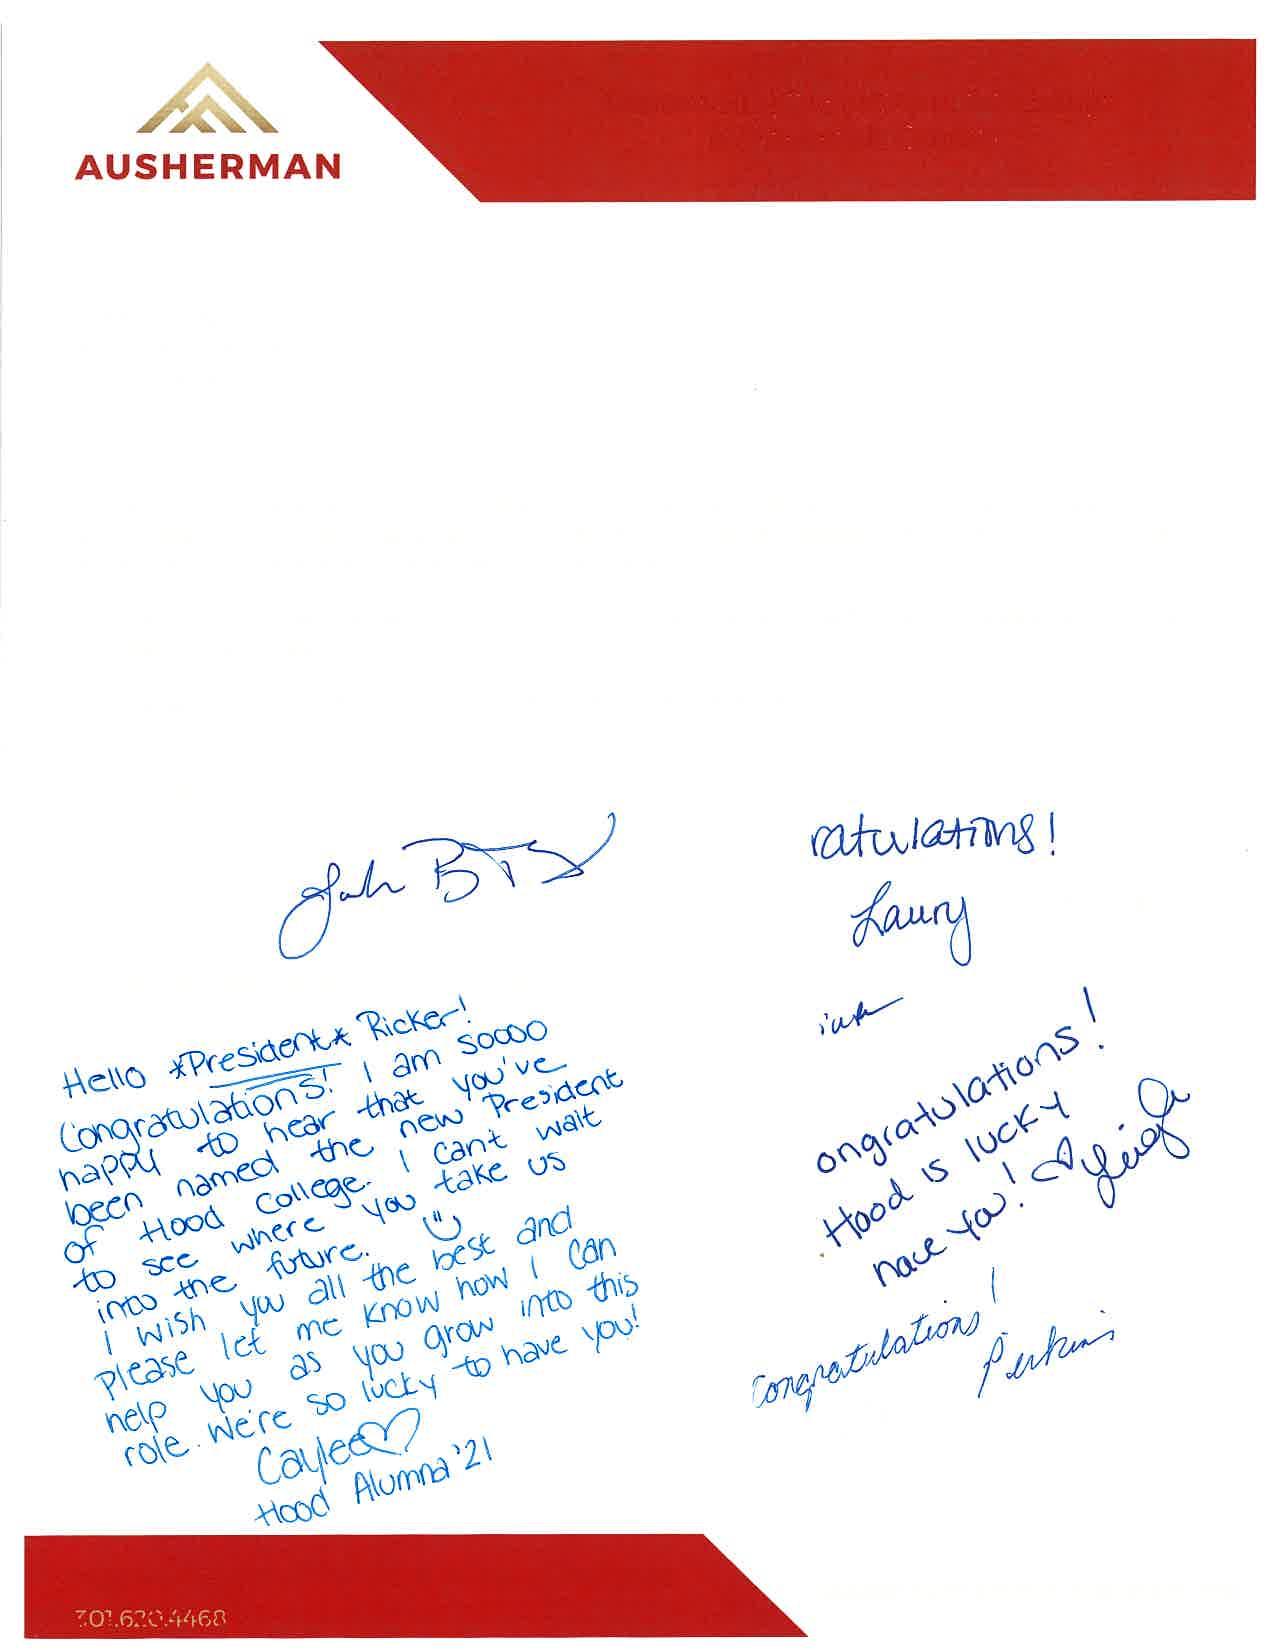 AUSHERMAN
ratulations!
Laury
Hello *President* Ricker!
Congratulations! I am soooo
happy to hear that you've
been named the new President
of Hood College. I can't wait
to see where you take us
into the future.
I wish you all the best and
please let me know how I can
help you as you grow into this
role. We're so lucky to have you!
Caylee
Hood Alumna '21
ongratulations!
Hood is lucky
have you!
Congratulations!
Perkins
301.620.4468